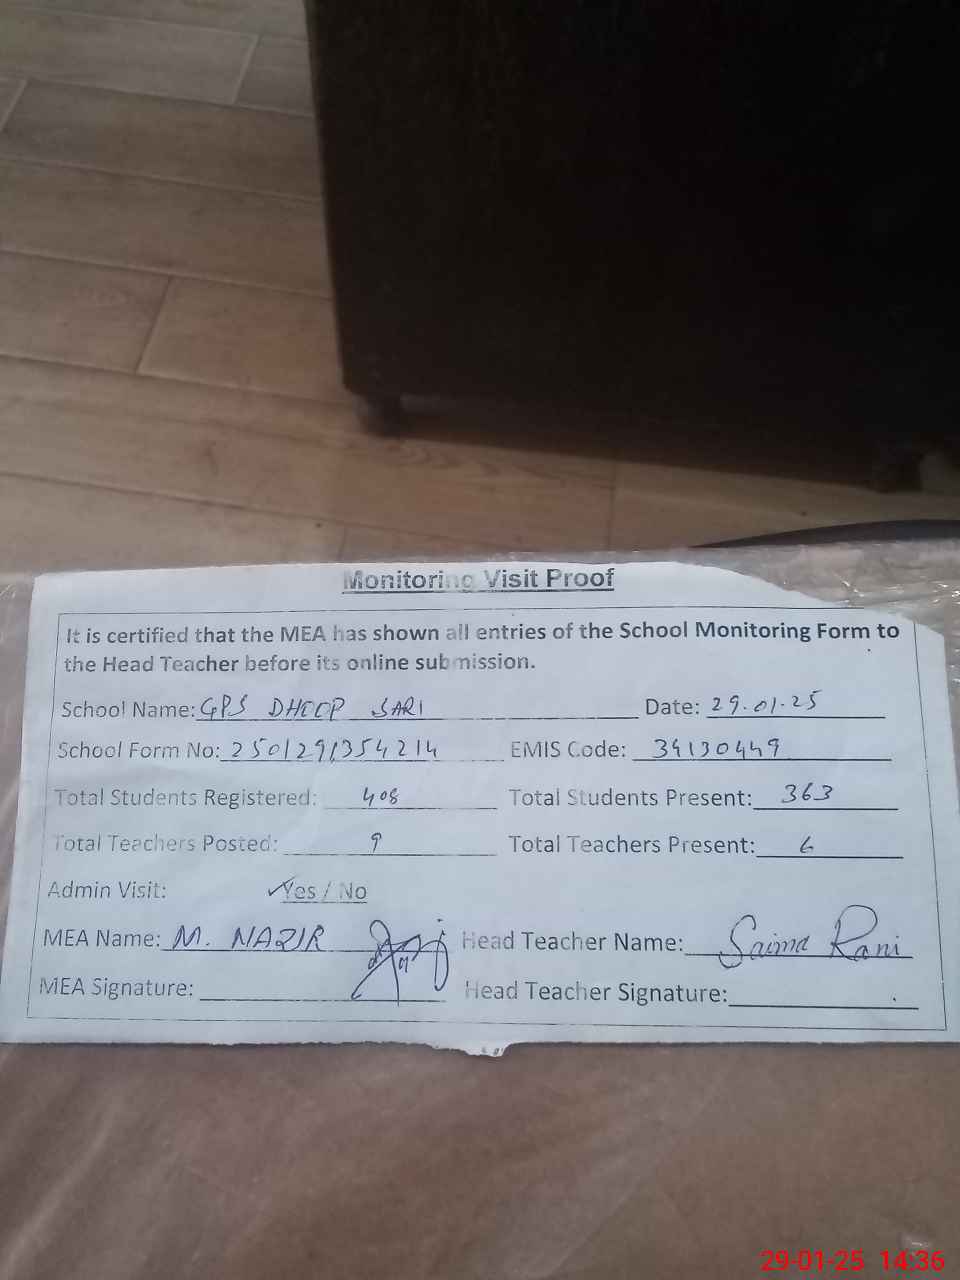 Monitoring Visit Proof
It is certified that the MEA has shown all entries of the School Monitoring Form to
the Head Teacher before its online submission.
School Name: GPS DHOOP SARI Date: 29.01.25
School Form No: 250129354214 EMIS Code: 34130449
Total Students Registered: 408 Total Students Present: 363
Total Teachers Posted: 9 Total Teachers Present: 6
Admin Visit: ✓Yes / No
MEA Name: M. NAZIR Head Teacher Name: Saima Rani
MEA Signature: Head Teacher Signature:
29-01-25 14:36